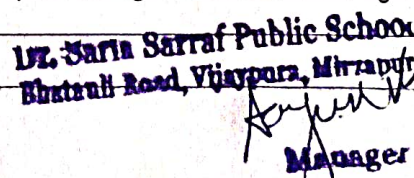 Dr. Sarla Sarraf Public School
Bhatauli Road, Vijaypura, Mirzapur
Manager